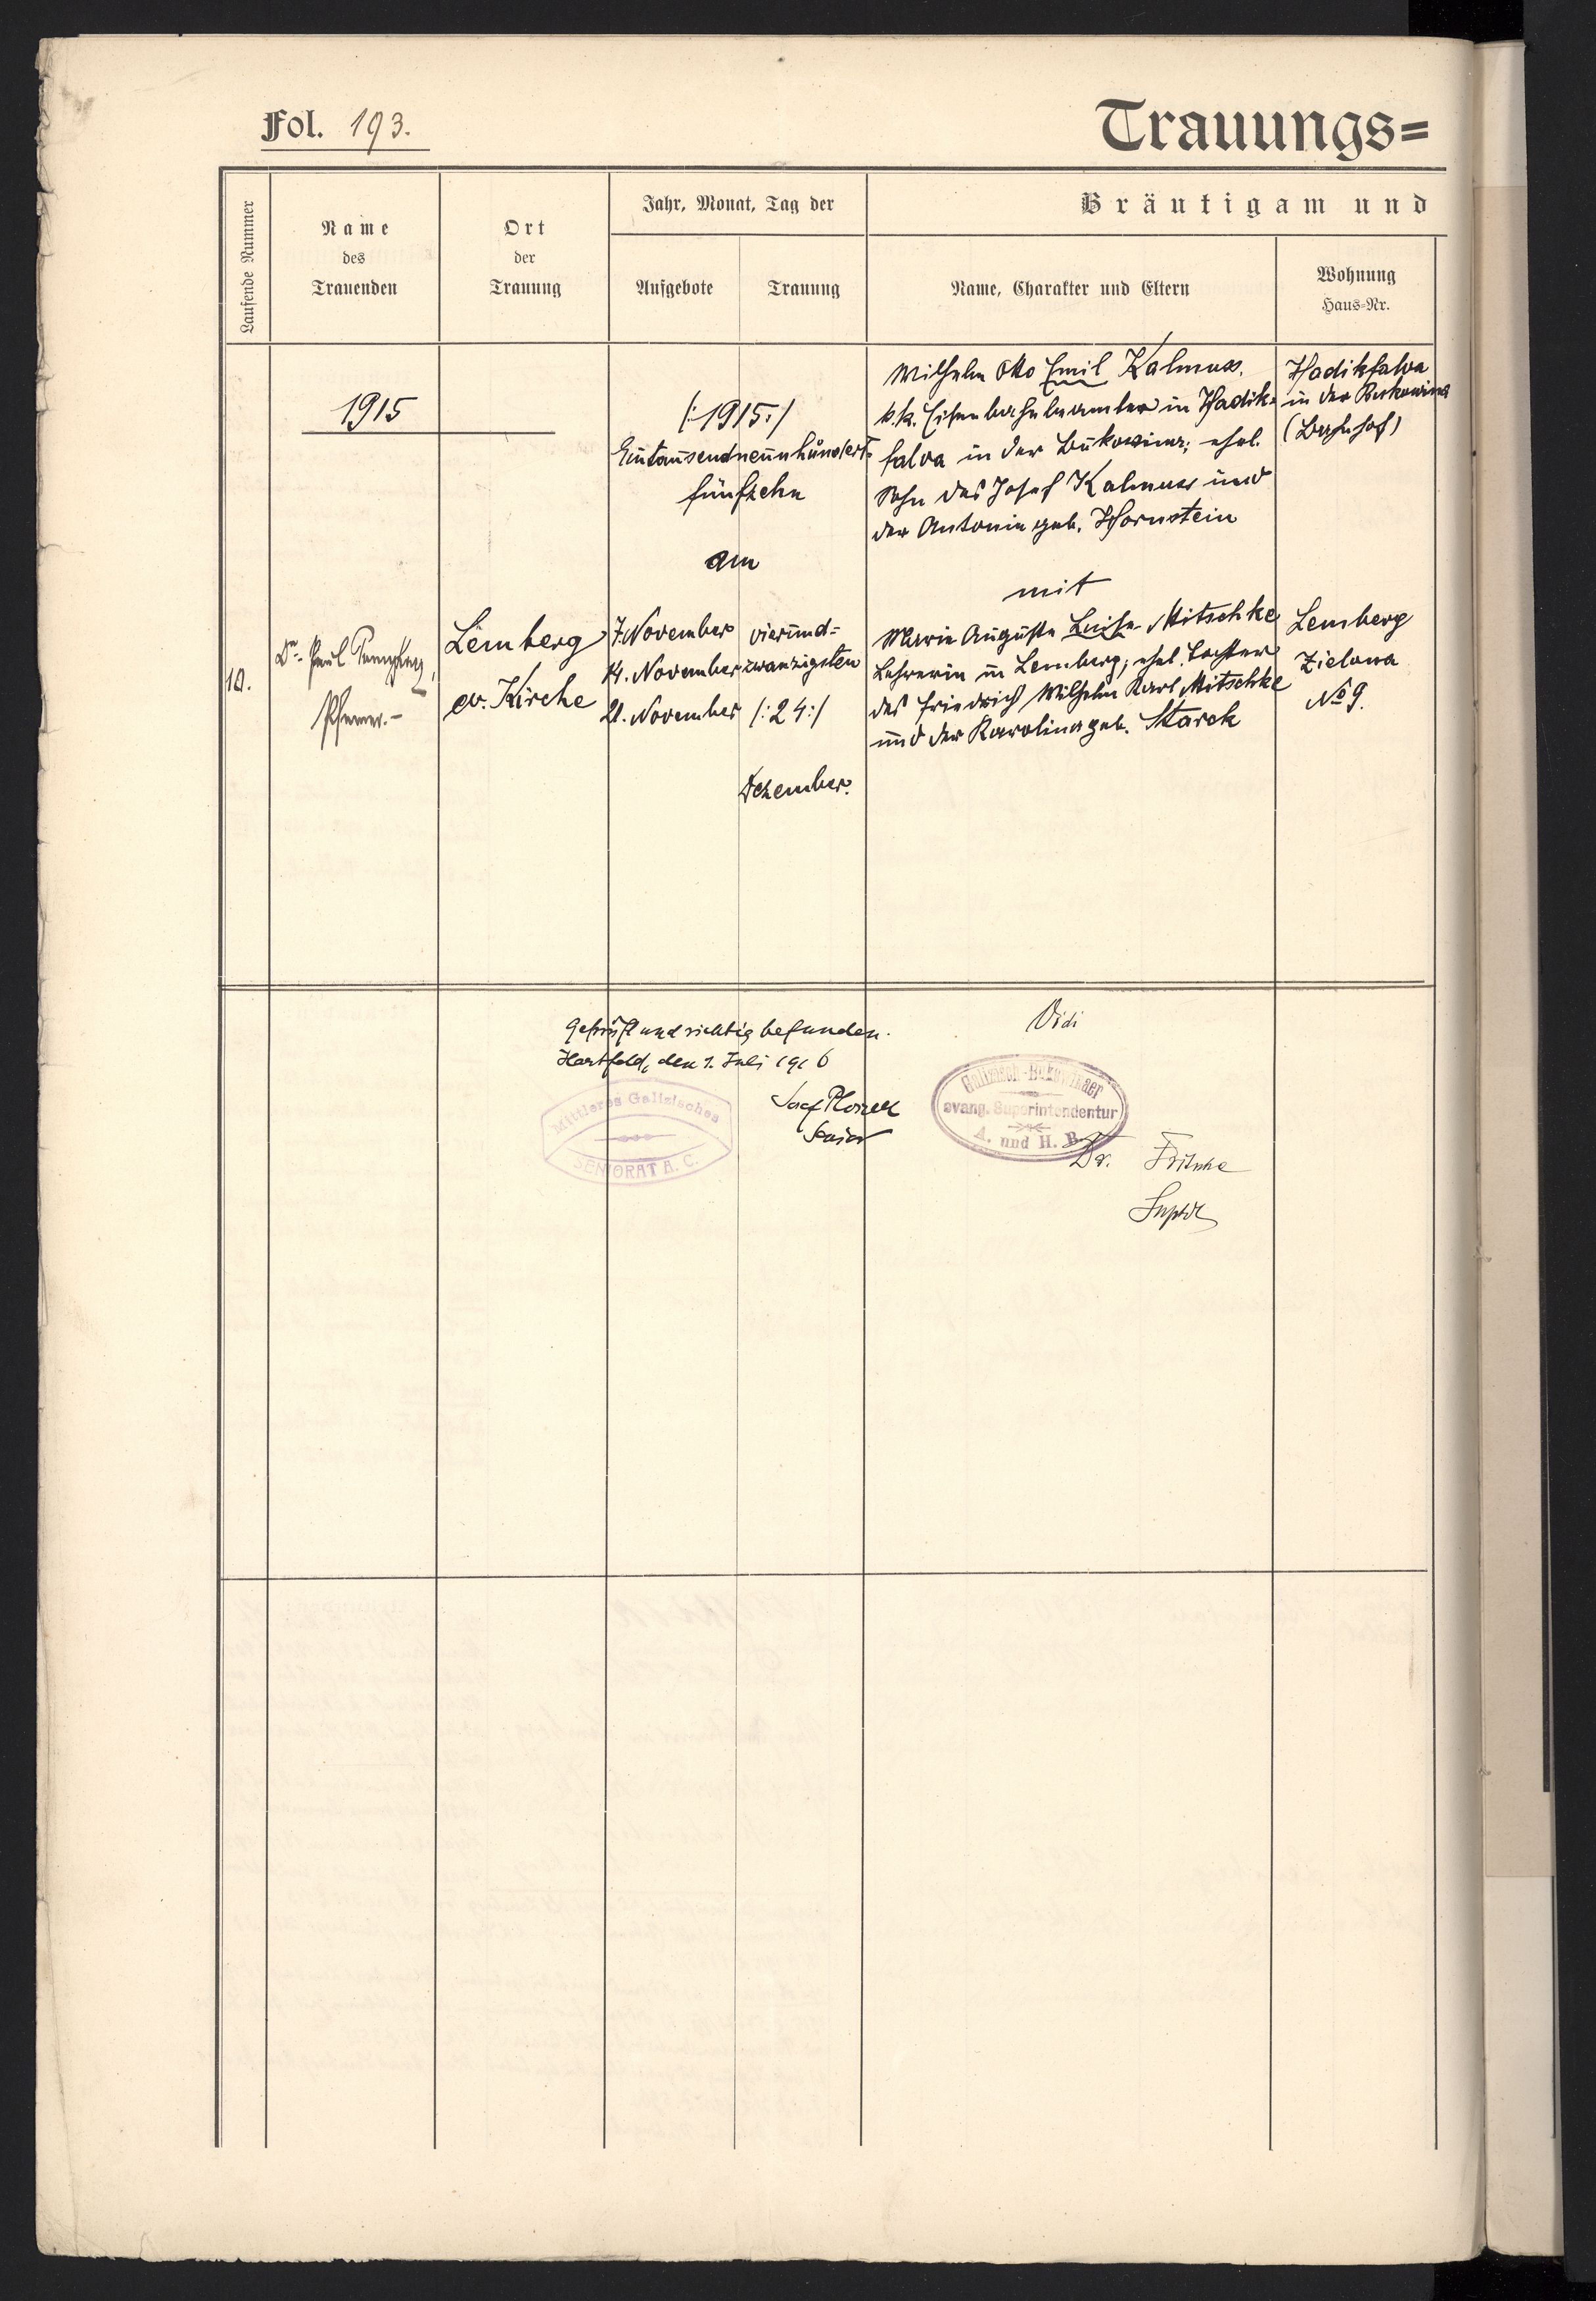 Fol. 193.
Trauungs=
Laufende Nummer
Name
des
Trauenden
Ort
der
Trauung
Jahr, Monat, Tag der
Aufgebote
Trauung
Bräutigam und
Name, Charakter und Eltern
Wohnung
Haus=Nr.
1915
10.
Dr. Paul
Pfarrer.-
Lemberg
ev. Kirche
/:1915:/
Eintausendneunhundert=
fünfzehn
am
7. November
14. November
21. November
vierund=
zwanzigsten
/:24:/
Dezember.
Wilhelm Otto Emil Kalmuss,
k.k. Eisenbahnbeamter in Hadik=
falva in der Bukowina; ehel.
Sohn des Josef Kalmuss und
der Antonie geb. Hornstein
mit
Marie Auguste Luise Mitschke
Lehrerin in Lemberg; ehel. Tochter
des Friedrich Wilhelm Karl Mitschke
und der Karolina geb. Starck
Hadikfalva
in der Bukowina
(Bahnhof)
Lemberg
Zielona
No 9.
Geprüft und richtig befunden.
Hartfeld, den 1. Juli 1916
Mittleres Galizisches
SENIORAT A. C.
Josef
Senior
Vidi
Galizisch-Bukowinaer
evang. Superintendentur
A. und H. B.
Dr. Fritsche
Suptdt